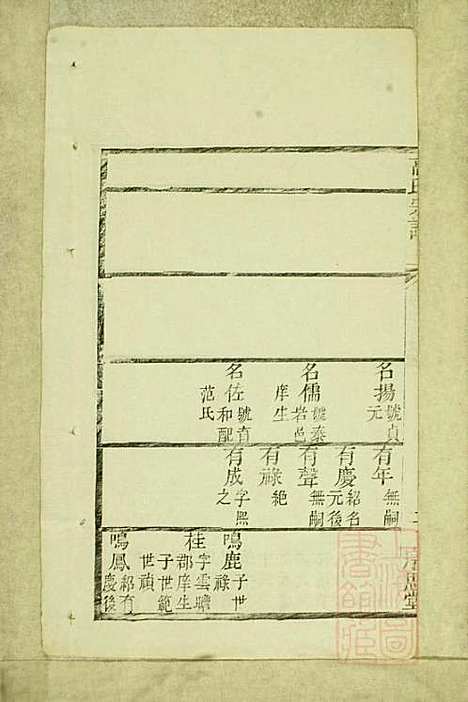 名揚 號貞元
名儒 號泰若邑庠生
名佐 號貞和配范氏
有年 無嗣
有慶 紹名元後
有聲 無嗣
有祿 絕
有成 字無之
鳴鹿 子世祿
桂 字雲瞻郡庠生子世範世禎
鳴鳳 紹有慶後